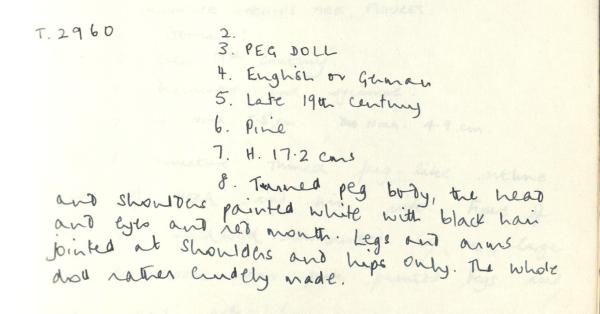 T.2960 2.
3. PEG DOLL
4. English or German
5. Late 19th century
6. Pine
7. H. 17.2 cms
8. Turned peg body, the head
and shoulders painted white with black hair
and eyes and red mouth. Legs and arms
jointed at shoulders and hips only. The whole
doll rather crudely made.